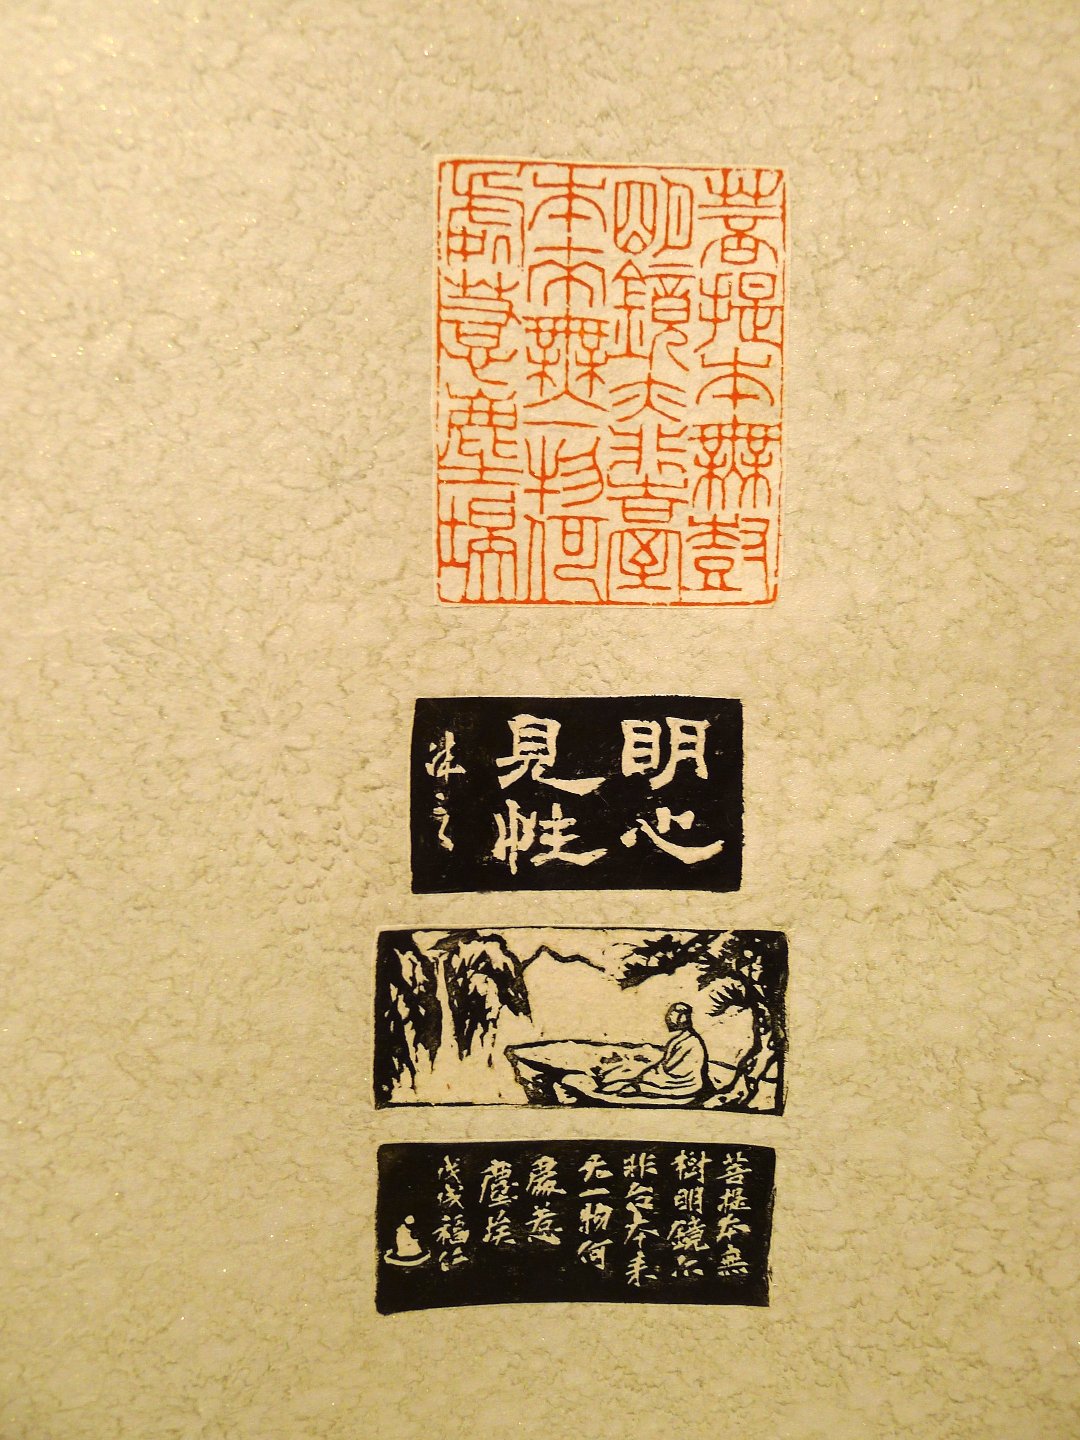 菩提本無樹
明鏡亦非臺
本來無一物何
處惹塵埃
明心
見性
菩提本無
樹明鏡亦
非台本来
无一物何
處惹
塵埃
戊戌福仁